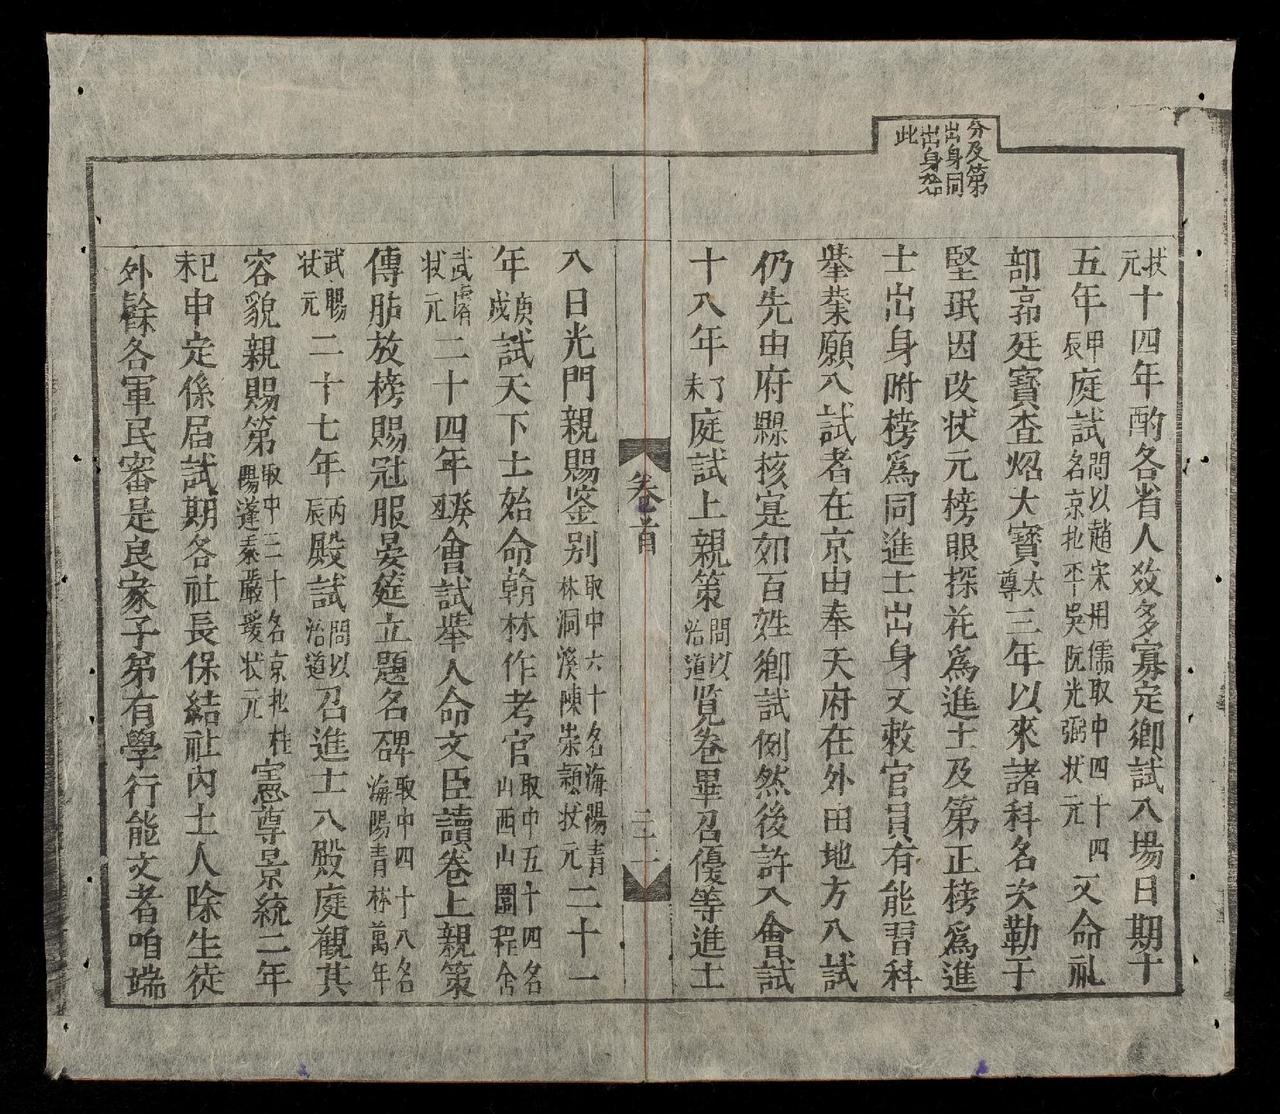 分及第
出身同
出身起
此
狀元十四年酌各省人数多寡定鄉試入場日期十
五年甲辰庭試問以趙宋用儒取中四十四名京北平吳阮光弼狀元又命礼
部郭廷寶查炤大寶太尊三年以來諸科名次勒于
堅珉因改状元榜眼探花為進士及第正榜為進
士出身附榜為同進士出身又敕官員有能習科
舉業願入試者在京由奉天府在外由地方入試
仍先由府縣核寔如百姓鄉試例然後許入會試
十八年丁未庭試上親策問以治道覧卷畢召優等進士
卷首
二十一
入日光門親賜鉴别取中六十名海陽青林洞溪陳崇穎状元二十一
年庚戌試天下士始命翰林作考官取中五十四名山西山圍程舍
武睿状元二十四年癸丑會試舉人命文臣讀卷上親策
傳胪放榜賜冠服晏筵立題名碑取中四十八名海陽青林萬年
武暘状元二十七年丙辰殿試問以治道召進士入殿庭觀其
容貌親賜第取中三十名京北桂陽蓬萊嚴瑗状元憲尊景統二年
己未申定係屆試期各社長保結社內士人除生徒
外餘各軍民審是良家子弟有學行能文者咱端